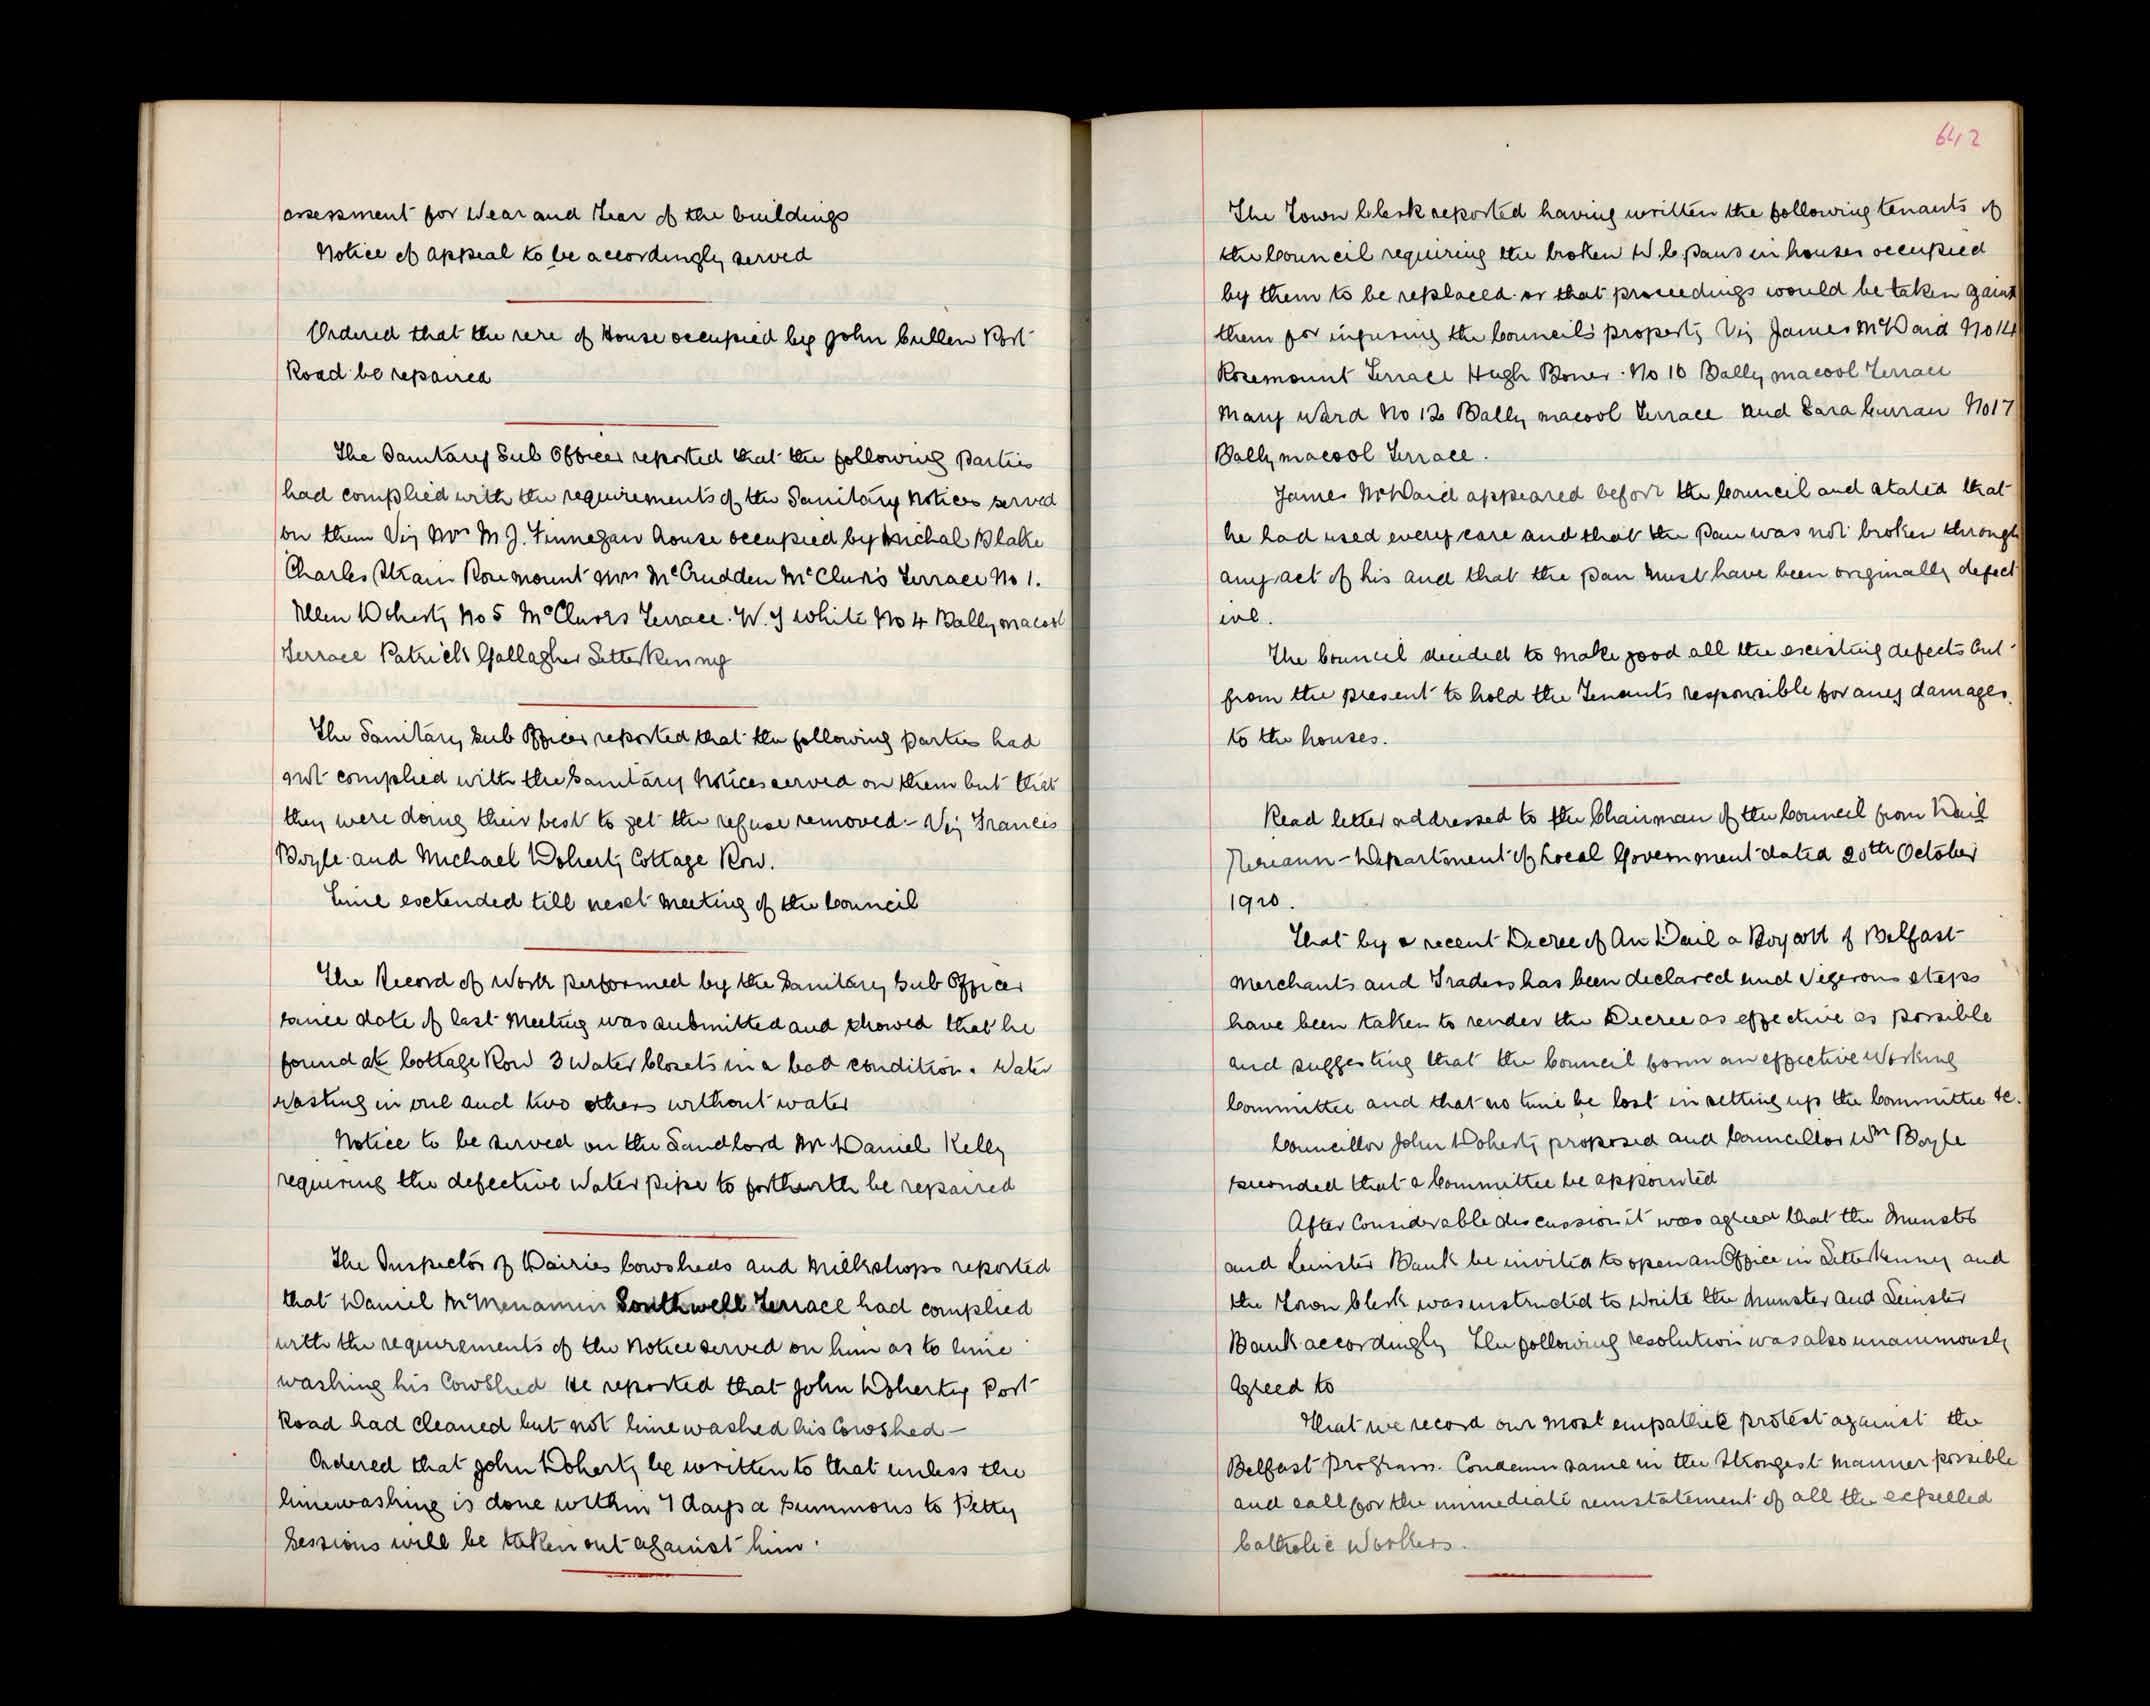 assessment for Wear and Tear of the buildings
Notice of appeal to be accordingly served
Ordered that the rere of House occupied by John Cullen Port
Road be repaired
The Sanitary Sub Officer reported that the following parties
had complied with the requirements of the Sanitary Notices served
on them Viz Mrs M J. Finnegan house occupied by Michal Blake
Charles Strain Rosemount Mrs McCrudden McClure's Terrace No 1.
Ellen Doherty No 5 McClures Terrace. W. J White No 4 Ballymacool
Terrace Patrick Gallagher Letterkenny
The Sanitary Sub Officer reported that the following parties had
not complied with the Sanitary Notices served on them but that
they were doing their best to get the refuse removed - Viz Francis
Boyle and Michael Doherty Cottage Row.
Time extended till next meeting of the Council
The Record of Work performed by the Sanitary Sub Officer
since date of last Meeting was submitted and showed that he
found at Cottage Row 3 Water Closets in a bad condition. Water
wasting in one and two others without water
Notice to be served on the Landlord Mr Daniel Kelly
requiring the defective Water pipe to forthwith be repaired
The Inspector of Dairies Cowsheds and Milkshops reported
that Daniel McMenamin Southwell Terrace had complied
with the requirements of the Notice served on him as to lime
washing his Cowshed He reported that John Doherty Port
Road had cleaned but not limewashed his Cowshed -
Ordered that John Doherty be written to that unless the
limewashing is done within 7 days a Summons to Petty
Sessions will be taken out against him.
642
The Town Clerk reported having written the following tenants of
the Council requiring the broken W.C. pans in houses occupied
by them to be replaced or that proceedings would be taken gainst
them for injuring the Council's property Viz James McDaid No 14
Rosemount Terrace Hugh Boner. No 10 Ballymacool Terrace
Mary Ward No 12 Ballymacool Terrace and Sara Curran No 17
Ballymacool Terrace.
James McDaid appeared before the Council and stated that
he had used every care and that the pan was not broken through
any act of his and that the pan must have been originally defect
ive.
The Council decided to make good all the existing defects but
from the present to hold the Tenants responsible for any damages
to the houses.
Read letter addressed to the Chairman of the Council from Dail
Eireann - Department of Local Government dated 20th October
1920.
That by a recent Decree of An Dail a Boycott of Belfast
Merchants and Traders has been declared and Vigerous steps
have been taken to render the Decree as effective as possible
and suggesting that the Council form an effective Working
Committee and that no time be lost in setting up the Committee &c.
Councillor John Doherty proposed and Councillor Wm Boyle
seconded that a Committee be appointed
After Considerable discussion it was agreed that the Munster
and Leinster Bank be invited to open an Office in Letterkenny and
the Town Clerk was instructed to write the Munster and Leinster
Bank accordingly The following resolution was also unanimously
Agreed to
That we record our most empathic protest against the
Belfast Program. Condemn same in the Strongest manner possible
and call for the immediate reinstatement of all the expelled
Catholic Workers.